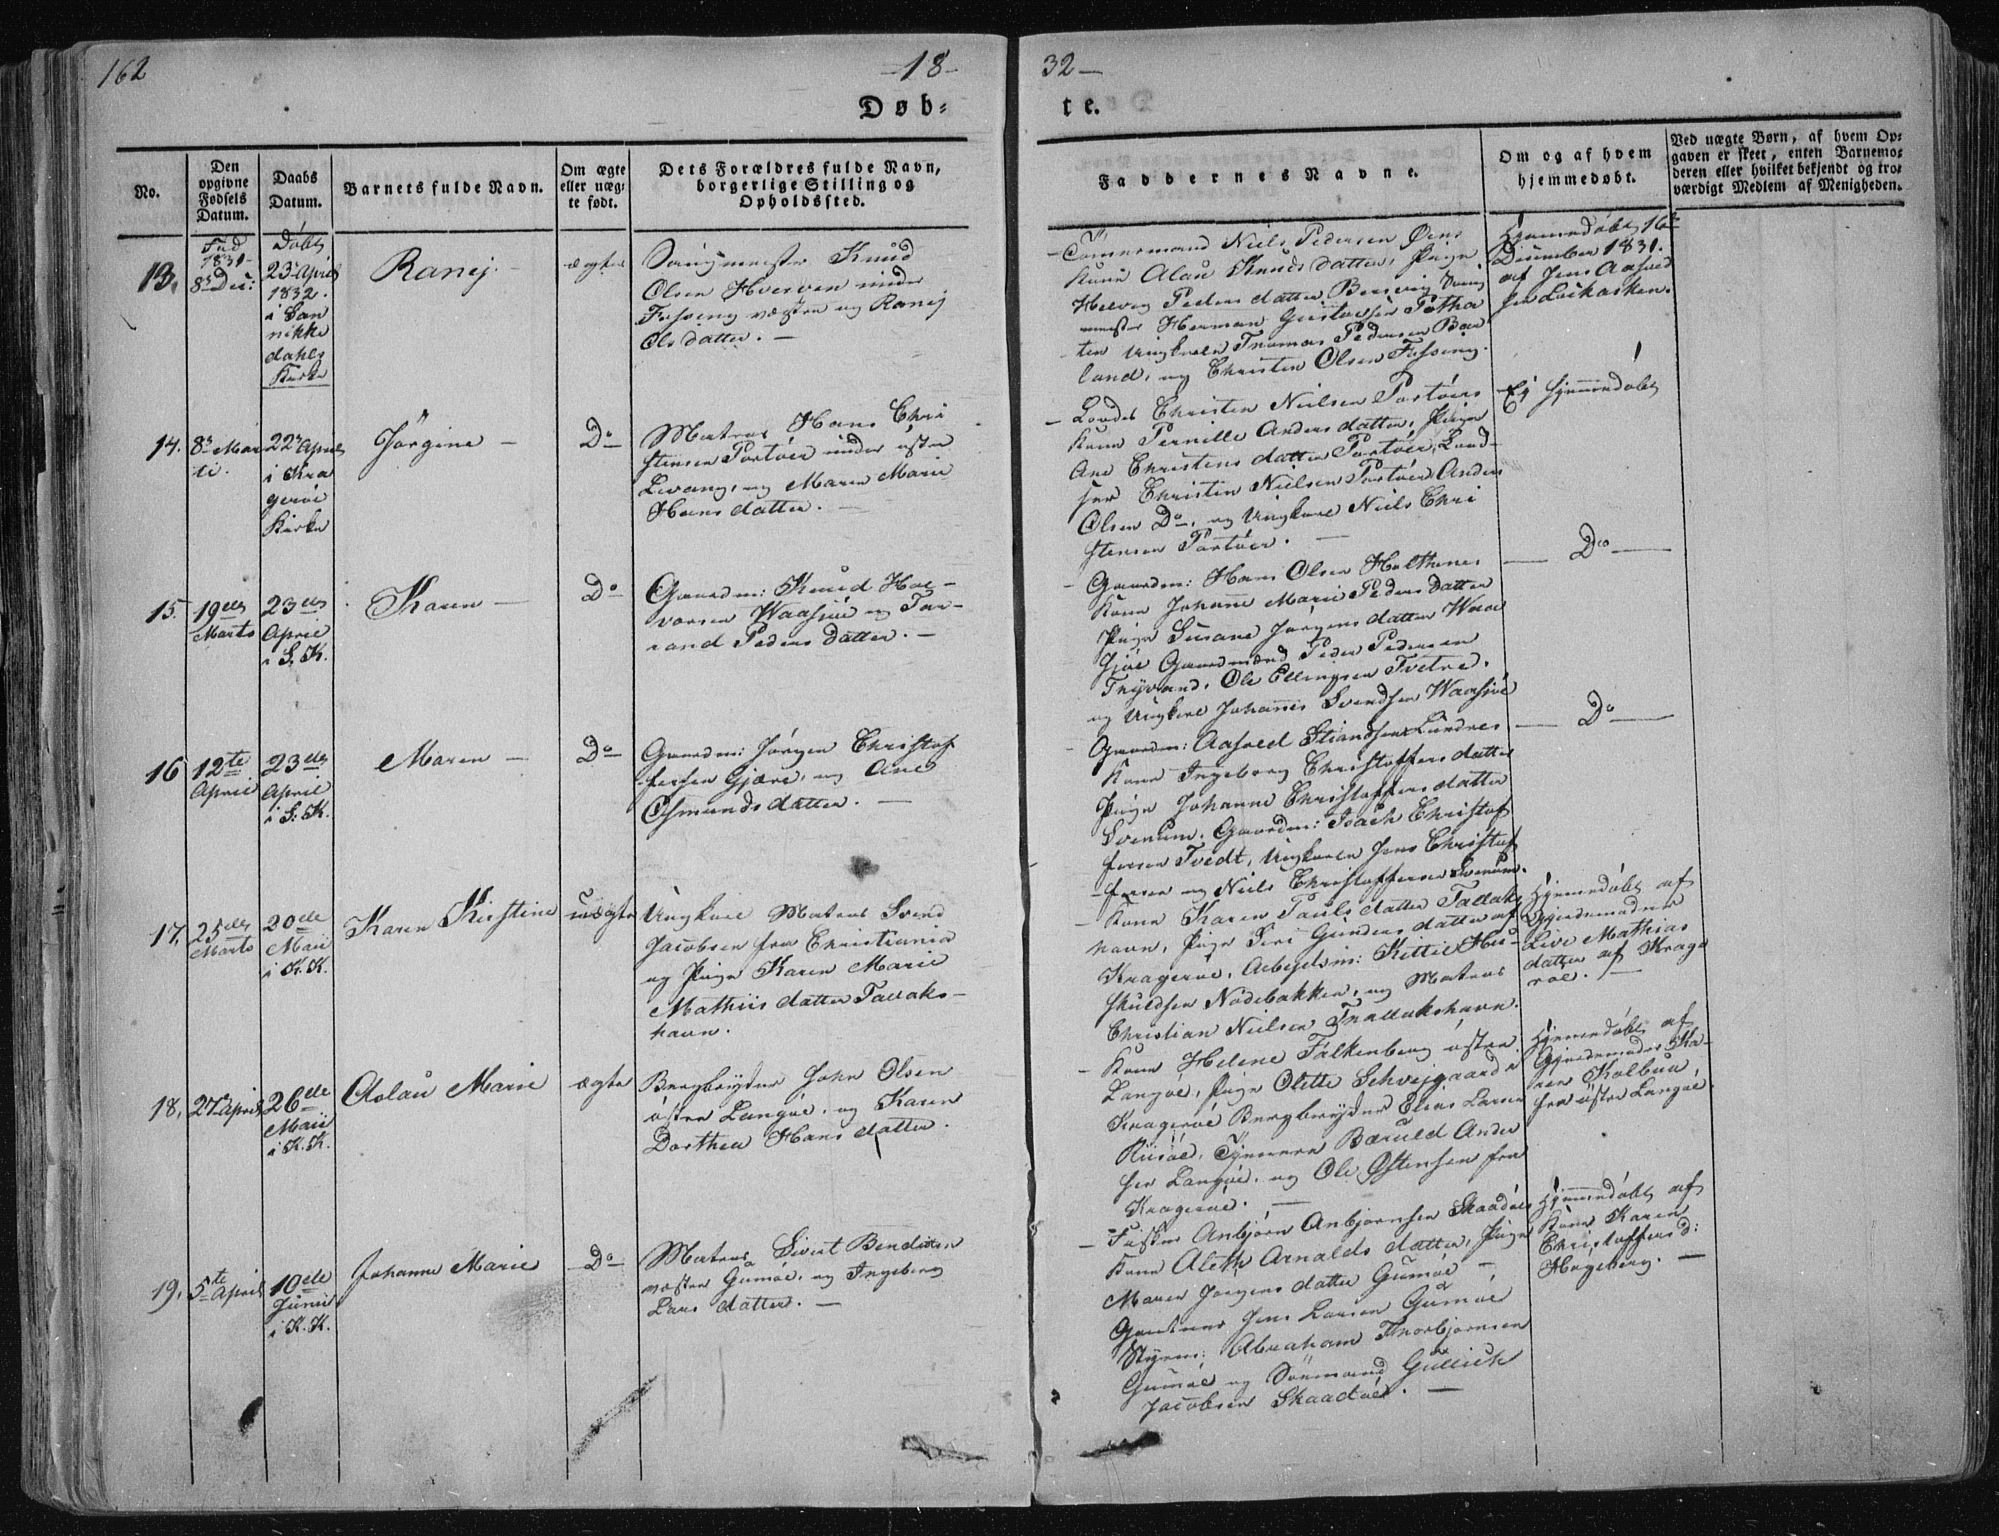 162
-18-
32-
Døb-
te.
No.
Den opgivne Fødsels Datum.
Daabs Datum.
Barnets fulde Navn.
Om ægte eller uægte født.
Dets Forældres fulde Navn, borgerlige Stilling og Opholdssted.
Faddernes Navne.
Om og af hvem hjemmedøbt.
Ved uægte Børn, af hvem Opgaven er skeet, enten Barnemoderen eller hvilket bekjendt og troværdigt Medlem af Menigheden.
13.
Fød
1831-
8de Dec:
Døbt
23de April
1832.
i San
nikke
dahls
Kirke
Ranej -
ægte
Knud
Olsen under
og Ranej
Ols datter. -
Tømmermand Niels Pedersen
Kone Alau Knuds datter, Pige
Helvig Peders datter
mester Herman
Ungkarle Thomas Pedersen Bar
land, og Christen Olsen
Hjemmedøbt 16de
December 1831.
af Jens
14.
8de Mar
ti.
22de April
i Kra
gerøe
Kirke
Jörgine -
Do
Matros Hans Chri
stensen Portöer under östre
Levang, og Maren Marie
Hans datter. -
Lods Christen Nielsen Portöer
Kone Pernille Anders datter, Pige
Ane Christens datter Portöer, Lood-
ser Christen Nielsen Portöer, Anders
Olsen Do, og Ungkarl Niels Chri
stensen Portöer. -
Ej hjemmedøbt
15.
19des
Marts
23des
April
i S. K.
Karen -
Do
Gaardm: Knud Hal-
vorsen Waasjöe og Tar-
rand Peders datter. -
Gaardm: Hans Olsen Holthenes
Kone Johanne Marie Peders datter
Pige Susane Jørgens datter Waa
sjöe Gaardmænd Peder Pedersen
Ole Ellingsen Tvetne.
og Ungkarl Johannes Svendsen Waasjöe
- Do -
16
12te
April
23des
April
i S. K.
Maren -
Do
Gaardm: Jörgen Christof
fersen Gjære, og Ane
Osmunds datter. -
Gaardm: Aasold Strandsen Lundres
Kone Ingeborg Christoffers datter
Pige Johanne Christoffers datter
Svenum. Gaardm: Isach Christof
fersen Tvedt, Ungkarle Jens Christof
fersen og Niels Christoffersen Svenum.
- Do -
17.
25des
Marts
20de
Maii
i K. K.
Karen Kirstine
uægte
Ungkarl Matros Svend
Jacobsen fra Christiania
og Pige Karen Marie
Mathiis datter Tallaks-
havn.
Kone Karen Pauls datter Tallaks
havn, Pige Siri Gunders datter af
Kragerøe, Arbejdsm: Kittil
og Matros
Christian Nielsen Trallakshavn.
Hjemmedøbt af
Gjordemoder
Live Mathias
datter af Krage
röe. -
18.
27de April
26de
Maii
i K. K.
Aslau Marie
ægte
Bergbryder John Olsen
östre Langöe, og Karen
Dorthea Hans datter.
Kone Helene Falkenberg östre
Langöe, Pige Olette Schvejgaard i
Kragerøe Bergbryder Elias Larsen
Tömmerm Anders
sen Langöe, og Ole Østensen fra
Kragerøe. -
Hjemmedøbt af
Gjordemoder Ka-
ren Kalbua
fra östre Langöe.
19.
5te April
10de
Junii
i K. K.
Johanne Marie
Do
Matros Sivert Bendixen
væstre Gumöe, og Ingeborg
Lars datter. -
Anbjörn Anbjørnsen Skaadöe
Kone Aleth Arnolds datter, Pige
Maren Jørgens datter Gumöe -
Jens Larsen Gumöe
Styrm: Abraham Thorbjørnsen
Gumöe og Sömand Gullich
Jacobsen Skaadöe. -
Hjemmedøbt af
Kone Karen
Christoffersd:
Hageberg. -